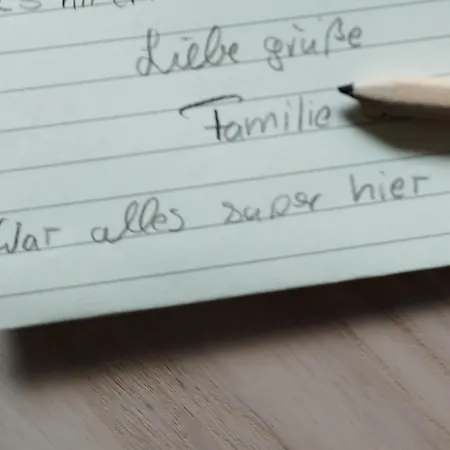 Liebe grüße
Familie
War alles super hier